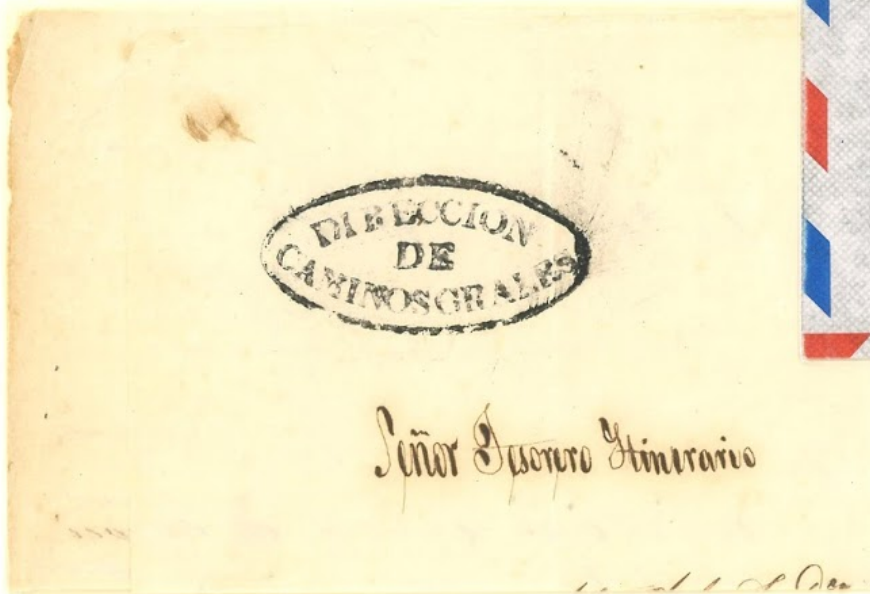 DIRECCION
DE
CAMINOS GRALES
Señor Tesorero Itinerario